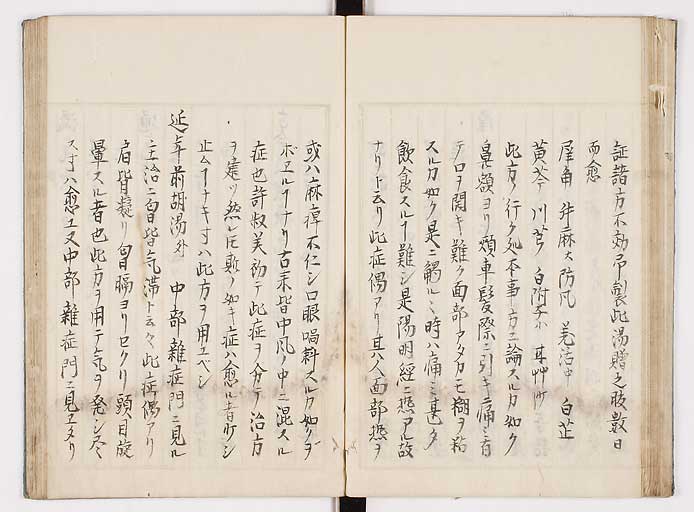 証諸方不効予製此湯贈之服数日
而愈
犀角 升麻大 防風 羌活中 白芷
黄芩 川芎 白附子小 甘艸少
此方ノ行ク処本事ノ方ニ論スルカ如ク
鼻額ヨリ頬車髪際ニ引キ痛ミ言
テ口ヲ開キ難ク面部アタカモ糊ヲ粘
スルカ如ク是ニ觸ルヽ時ハ痛ミ甚ク
飲食スルヿ難シ是陽明経ニ熱アル故
ナリト云リ此症偶アリ其ハ面部熱ヲ
或ハ麻痺不仁シ口眼喎斜スルカ如クヲ
ホユルヿナリ古来皆中風ノ中ニ混スル
症也許叔美初テ此症ヲ分テ治方
ヲ建ツ然レ圧斯ノ如キ症ハ愈ル者少シ
止ムヿナキ寸ハ此方ヲ用ユベシ
延年前胡湯外 中部 雜症門ニ見ル
主治ニ胷背気滞ト云々此症偶アリ
肩背凝リ胷膈ヨリセクリ頭ノ目旋
暈スル者也此方ヲ用テ気ヲ発シ尽
ス寸ハ愈ユ又中部 雜症門ニ見エタリ